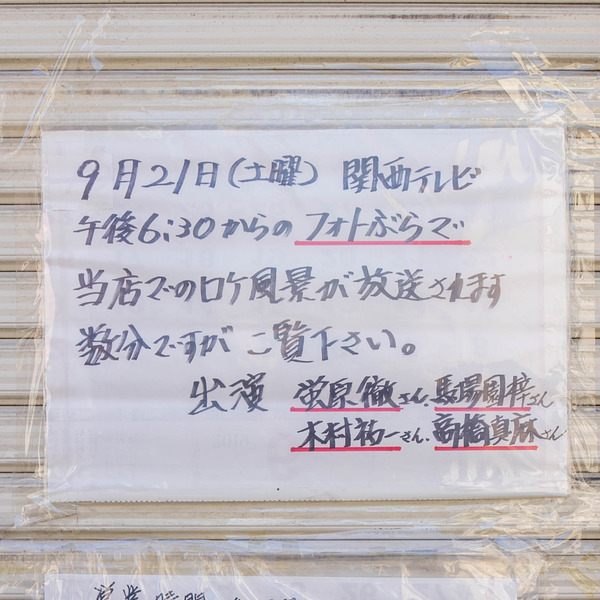 9月21日(土曜) 関西テレビ
午後6:30からのフォトぶらで
当店でのロケ風景が放送されます
数分ですがご覧下さい。
出演 蛍原徹さん、馬場園梓さん
木村祐一さん、高橋真麻さん
営業時間